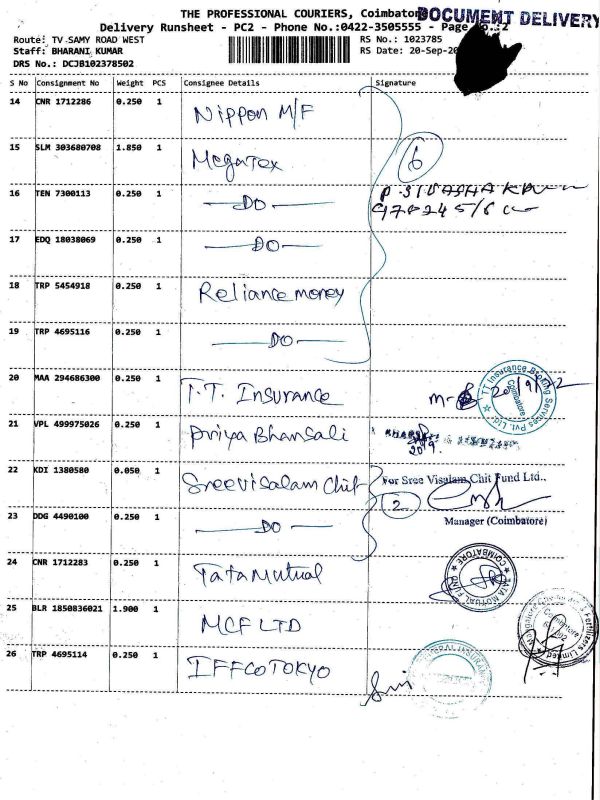 THE PROFESSIONAL COURIERS, Coimbatore
DOCUMENT DELIVERY
Delivery Runsheet - PC2 - Phone No.:0422-3505555 - Page
Route: TV SAMY ROAD WEST
RS No.: 1023785
Staff: BHARANI KUMAR
RS Date: 20-Sep-20
DRS No.: DCJB102378502
S No Consignment No Weight PCS Consignee Details Signature
14 CNR 1712286 0.250 1 Nippon M/F
15 SLM 303680708 1.850 1 Megatex
6
16 TEN 7300113 0.250 1 DO
17 EDQ 18038069 0.250 1 DO
18 TRP 5454918 0.250 1 Reliance money
19 TRP 4695116 0.250 1 DO
20 MAA 294686300 0.250 1 T.T. Insurance
TT Insurance Broking Services Pvt. Ltd. Coimbatore
21 VPL 499975026 0.250 1 Priya Bhansali
20/9.
22 KDI 1380580 0.050 1 Sreevisalam Chit
For Sree Visalam Chit Fund Ltd.,
2
Manager (Coimbatore)
23 DDG 4490100 0.250 1 DO
24 CNR 1712283 0.250 1 Tata Mutual
TATA MUTUAL FUND COIMBATORE
25 BLR 1850836021 1.900 1 MCF LTD
26 TRP 4695114 0.250 1 IFFCO TOKYO